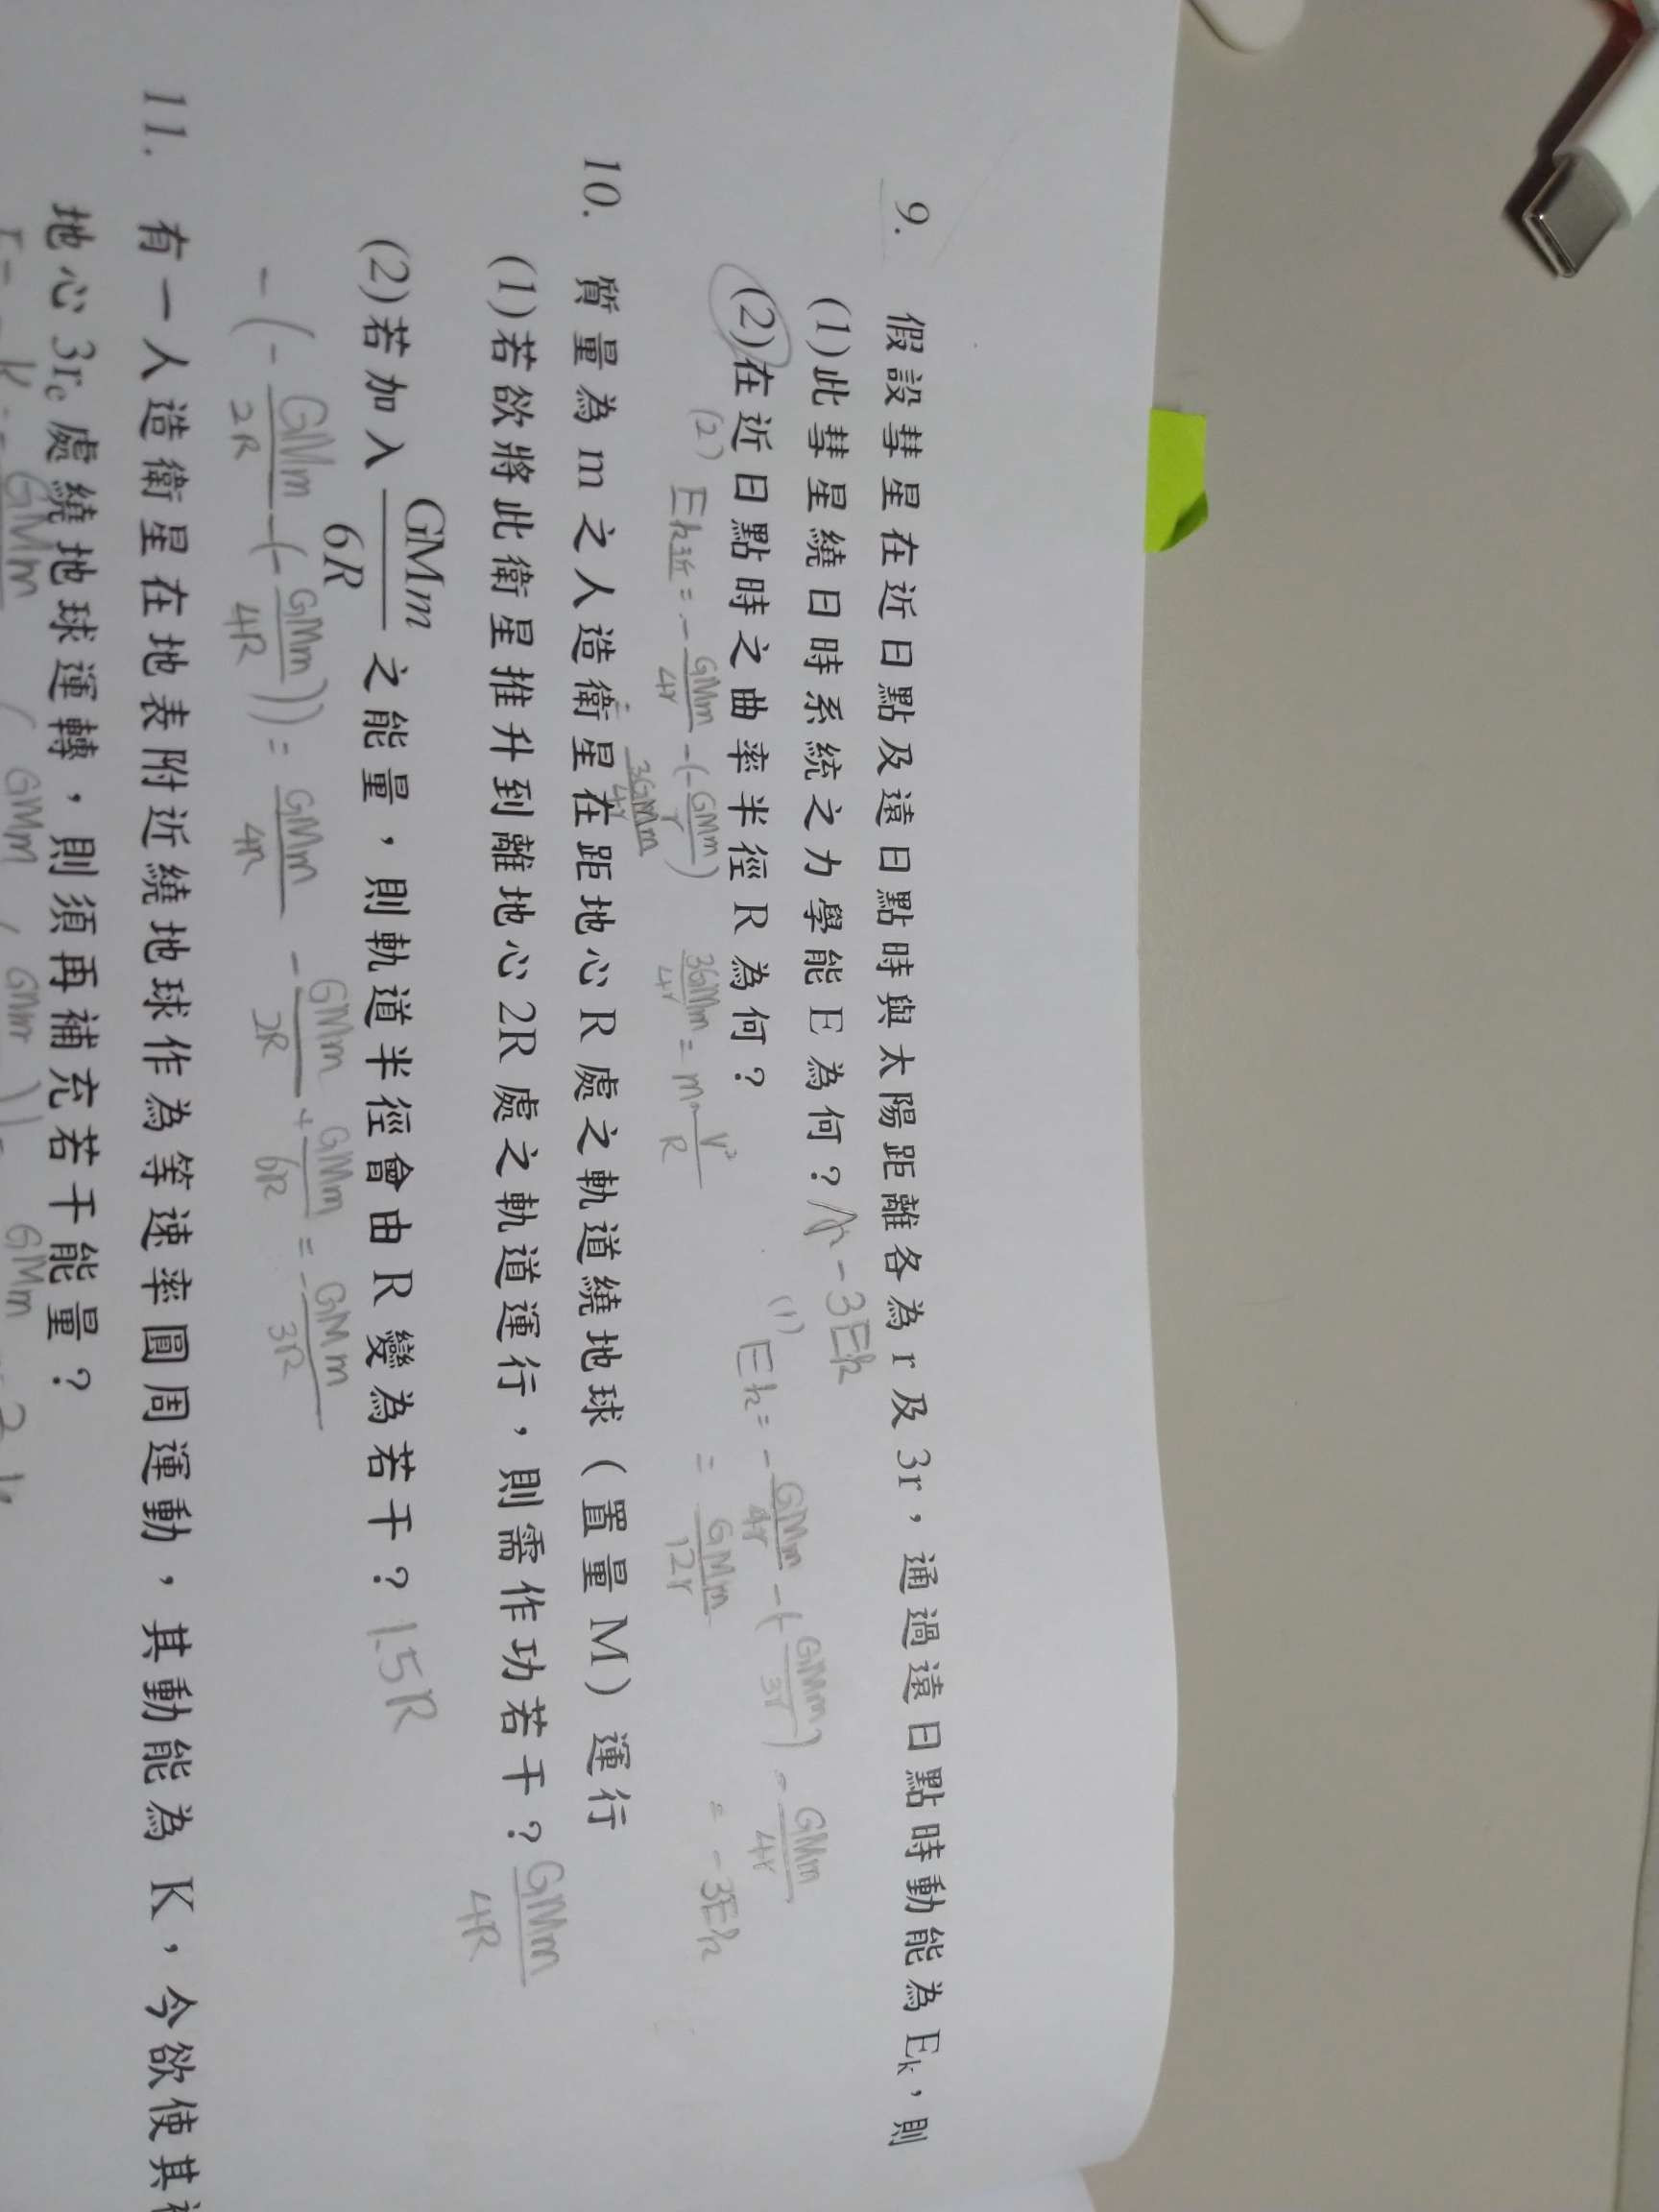 9. 假設彗星在近日點及遠日點時與太陽距離各為 r 及 3r，通過遠日點時動能為 Eₖ，則
(1)此彗星繞日時系統之力學能 E 為何？ -3Ek
(1) Ek = -GMm/4r -(-GMm/3r) -GMm/4r
= GMm/12r = -3Ek
(2)在近日點時之曲率半徑 R 為何？
(2) Ek近 = -GMm/4r -(-GMm/r) 3GMm/4r = m v²/R
3GMm/4r
10. 質量為 m 之人造衛星在距地心 R 處之軌道繞地球（置量 M）運行
(1)若欲將此衛星推升到離地心 2R 處之軌道運行，則需作功若干？ GMm/4R
(2)若加入 GMm/6R 之能量，則軌道半徑會由 R 變為若干？ 1.5R
-(-GMm/2R -(-GMm/4R)) = GMm/4R -GMm/2R + GMm/6R = -GMm/3R
11. 有一人造衛星在地表附近繞地球作為等速率圓周運動，其動能為 K，今欲使其
地心 3rₑ 處繞地球運轉，則須再補充若干能量？